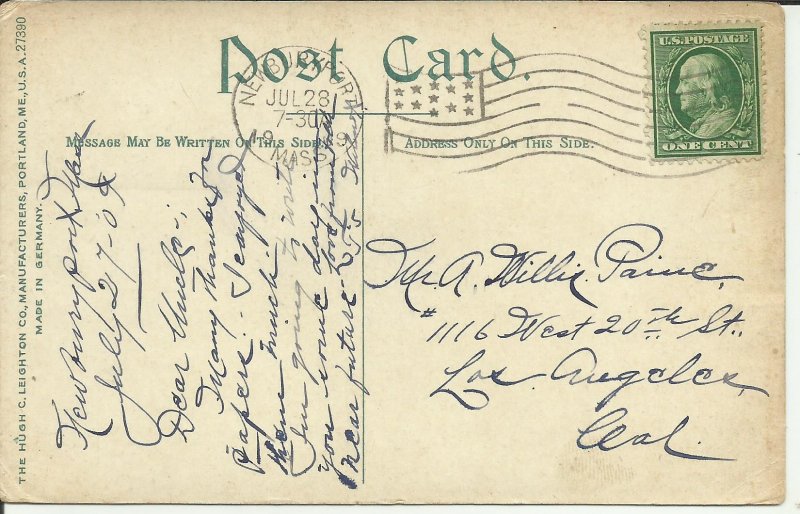 THE HUGH C. LEIGHTON CO., MANUFACTURERS, PORTLAND, ME., U.S.A. 27390
MADE IN GERMANY.
Post Card.
MESSAGE MAY BE WRITTEN ON THIS SIDE.
ADDRESS ONLY ON THIS SIDE.
NEWBURYPORT
JUL 28
7-30
19 9
MASS.
U.S. POSTAGE
ONE CENT
Newburyport, Mass
July 27-09
Dear Uncle:
Many thanks for
papers. I enjoyed
them much.
I'm going to write
you some day in
near future. Love from all
Mr. A. Willis Paine,
#1116 West 20th St.,
Los Angeles,
Cal.